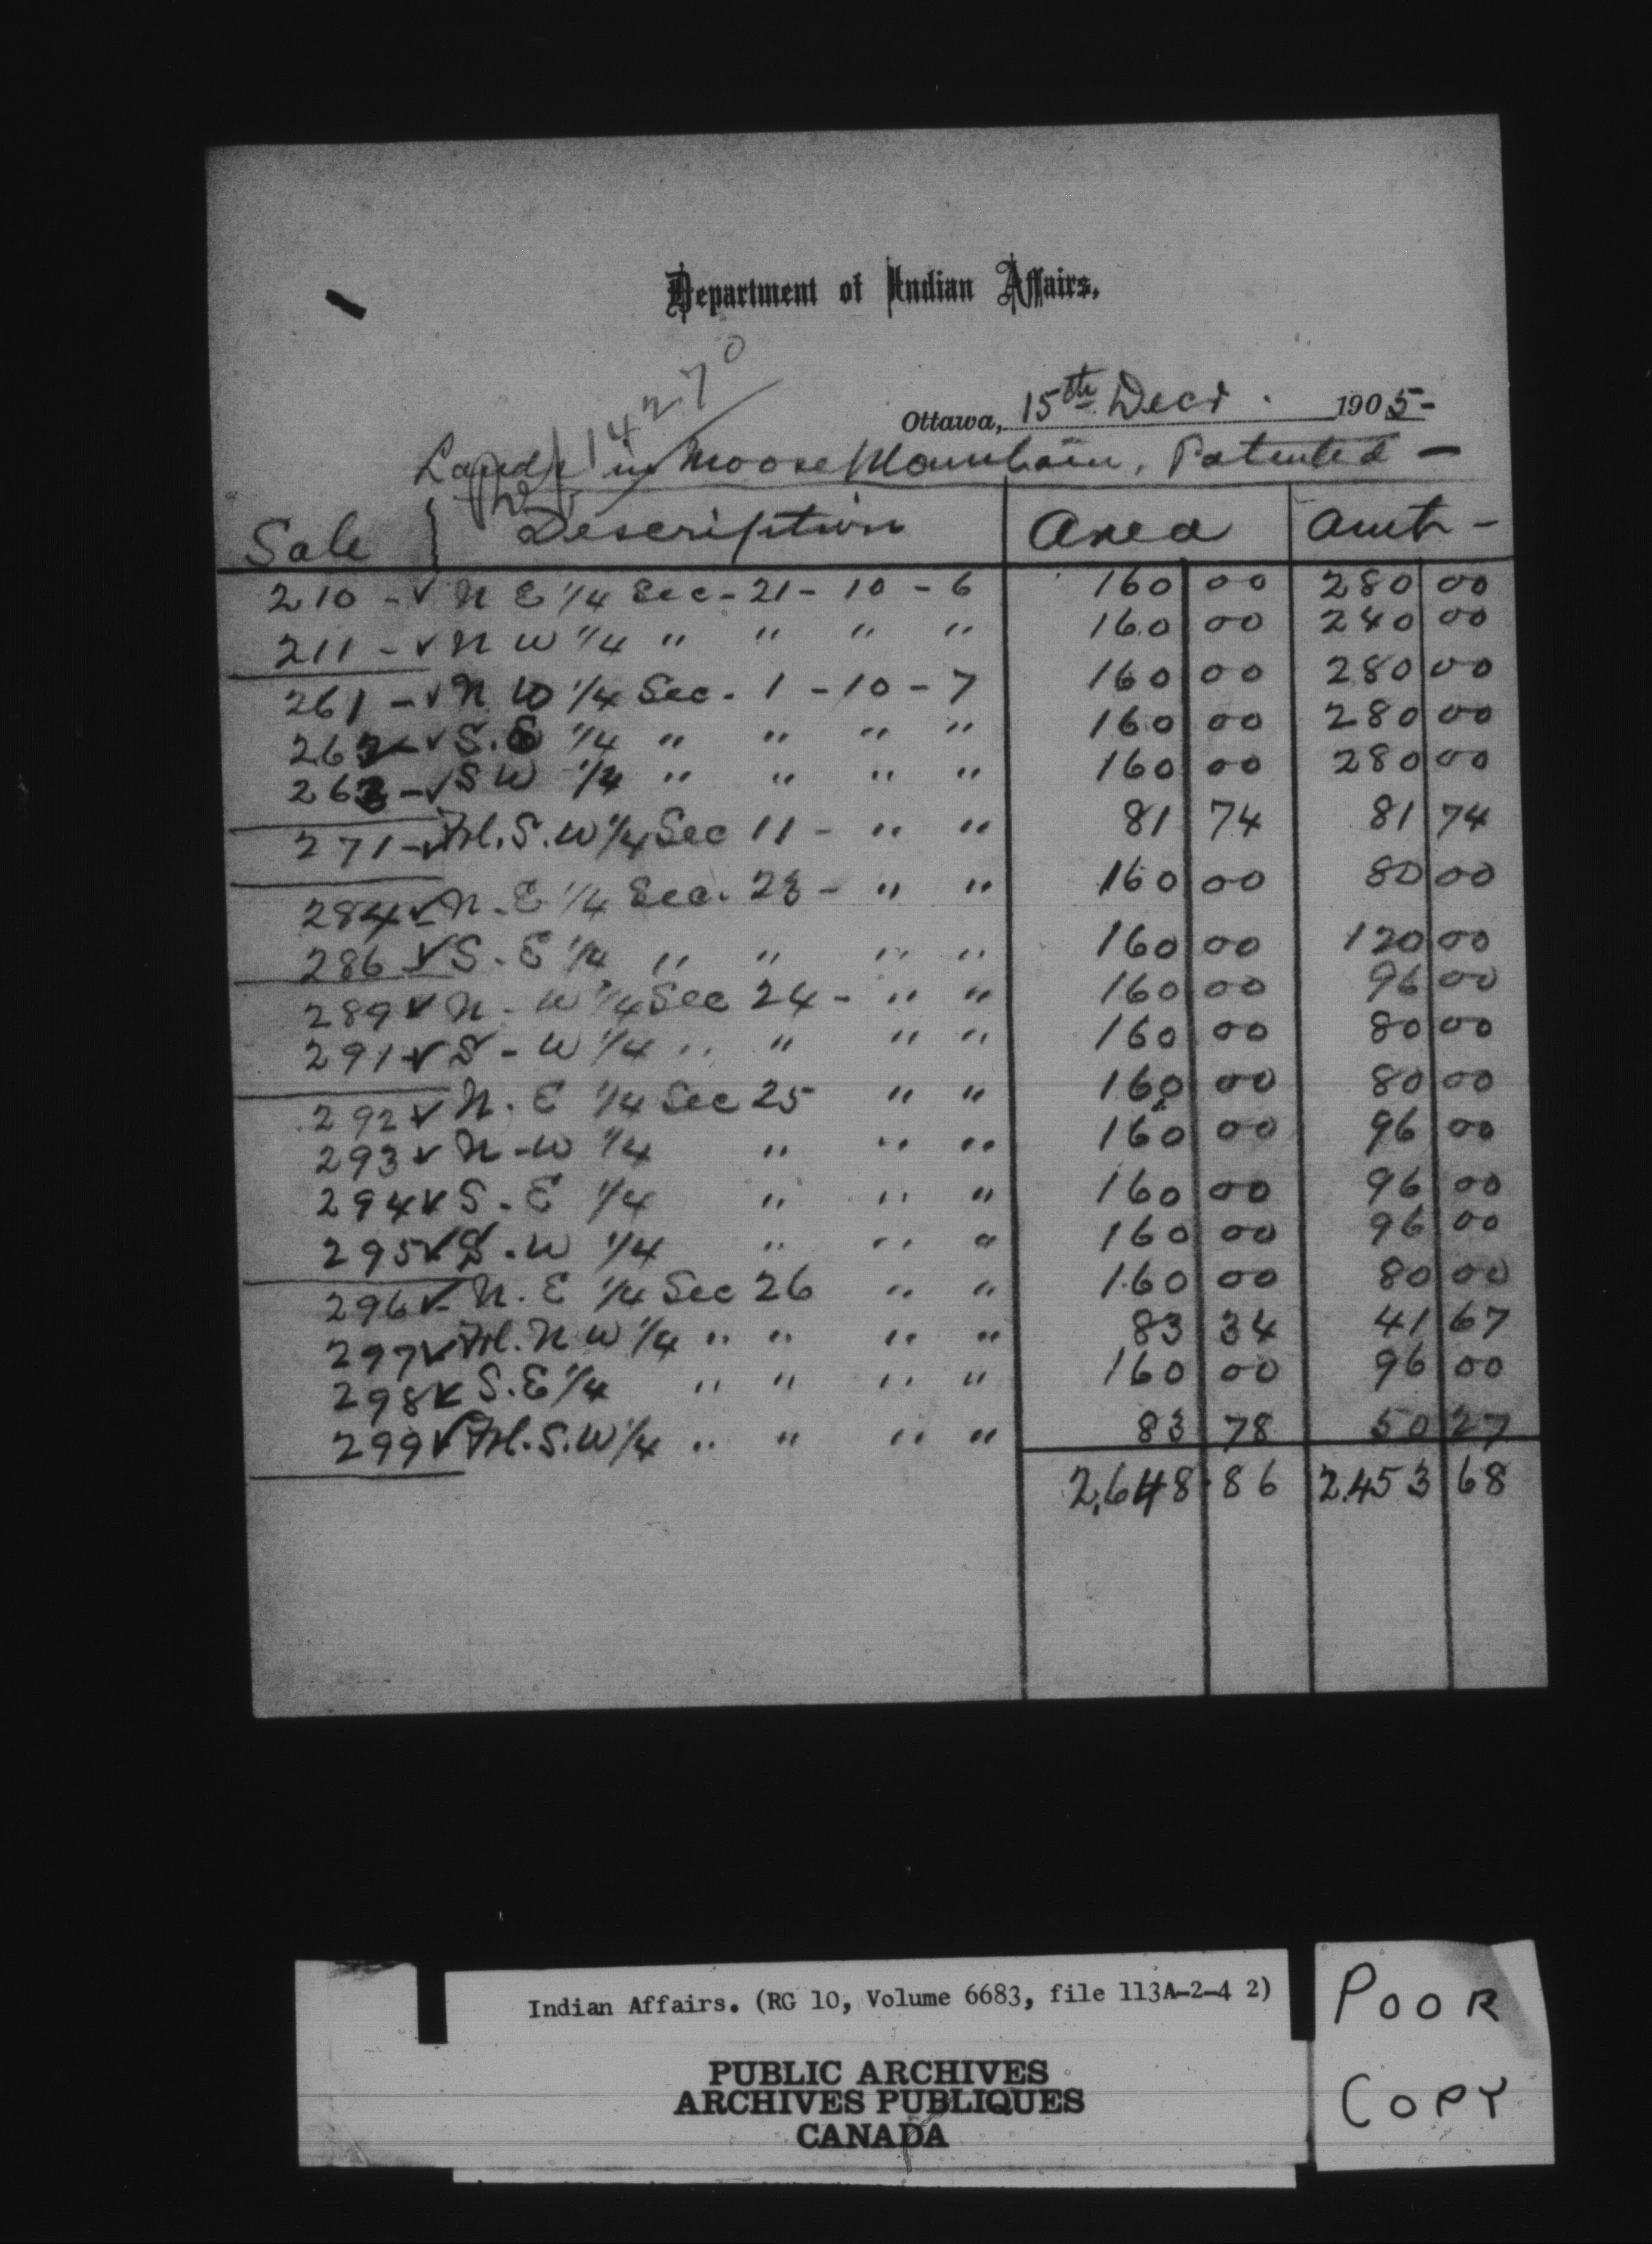 Department of Indian Affairs.
14270
Ottawa, 15th Decr. 1905-
Lands in Moose Mountain, Patented -
Sale } Description Area Amt -
210 - ✓ N E 1/4 Sec - 21 - 10 - 6 160 00 280 00
211 - ✓ N W 1/4 " " " " 160 00 240 00
261 - ✓ N. W 1/4 Sec. 1 - 10 - 7 160 00 280 00
262 - ✓ S. E 1/4 " " " " 160 00 280 00
263 - ✓ S W 1/4 " " " " 160 00 280 00
271 - ✓ Frl. S. W 1/4 Sec 11 - " " 81 74 81 74
284 ✓ N. E 1/4 Sec. 23 - " " 160 00 80 00
286 ✓ S. E 1/4 " " " " 160 00 120 00
289 ✓ N - W 1/4 Sec 24 - " " 160 00 96 00
291 ✓ S - W 1/4 " " " " 160 00 80 00
292 ✓ N. E 1/4 Sec 25 " " 160 00 80 00
293 ✓ N - W 1/4 " " " 160 00 96 00
294 ✓ S. E 1/4 " " " 160 00 96 00
295 ✓ S. W 1/4 " " " 160 00 96 00
296 ✓ N. E 1/4 Sec 26 " " 160 00 80 00
297 ✓ Frl. N W 1/4 " " " " 83 34 41 67
298 ✓ S. E 1/4 " " " " 160 00 96 00
299 ✓ Frl. S. W 1/4 " " " " 83 78 50 27
2,648 86 2.453 68
Indian Affairs. (RG 10, Volume 6683, file 113A-2-4 2)
PUBLIC ARCHIVES
ARCHIVES PUBLIQUES
CANADA
POOR
COPY